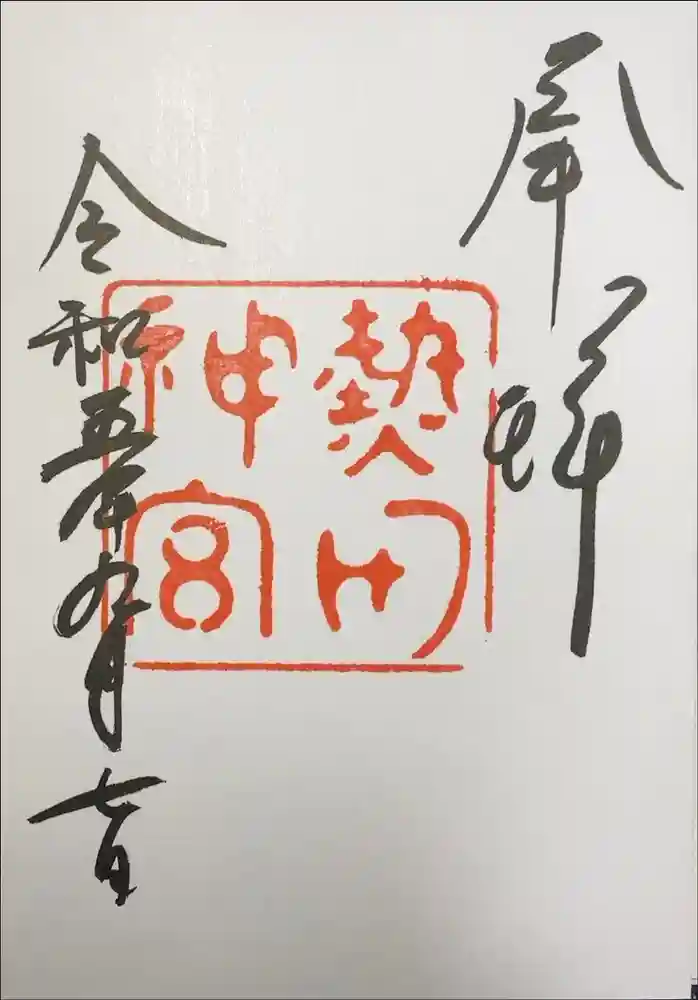 奉拝
熱田
神宮
令和五年九月七日